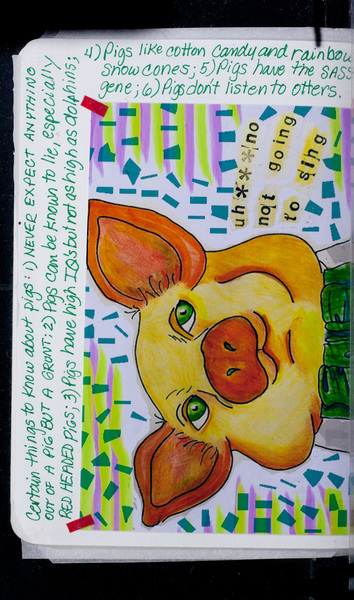 Certain things to know about pigs: 1) NEVER EXPECT ANYTHING
OUT OF A PIG BUT A GRUNT; 2) Pigs can be known to lie, especially
RED HEADED PIGS; 3) Pigs have high IQs but not as high as dolphins;
4) Pigs like cotton candy and rainbow
snow cones; 5) Pigs have the SASS
gene; 6) Pigs don't listen to otters.
uh***no
not going
to sing